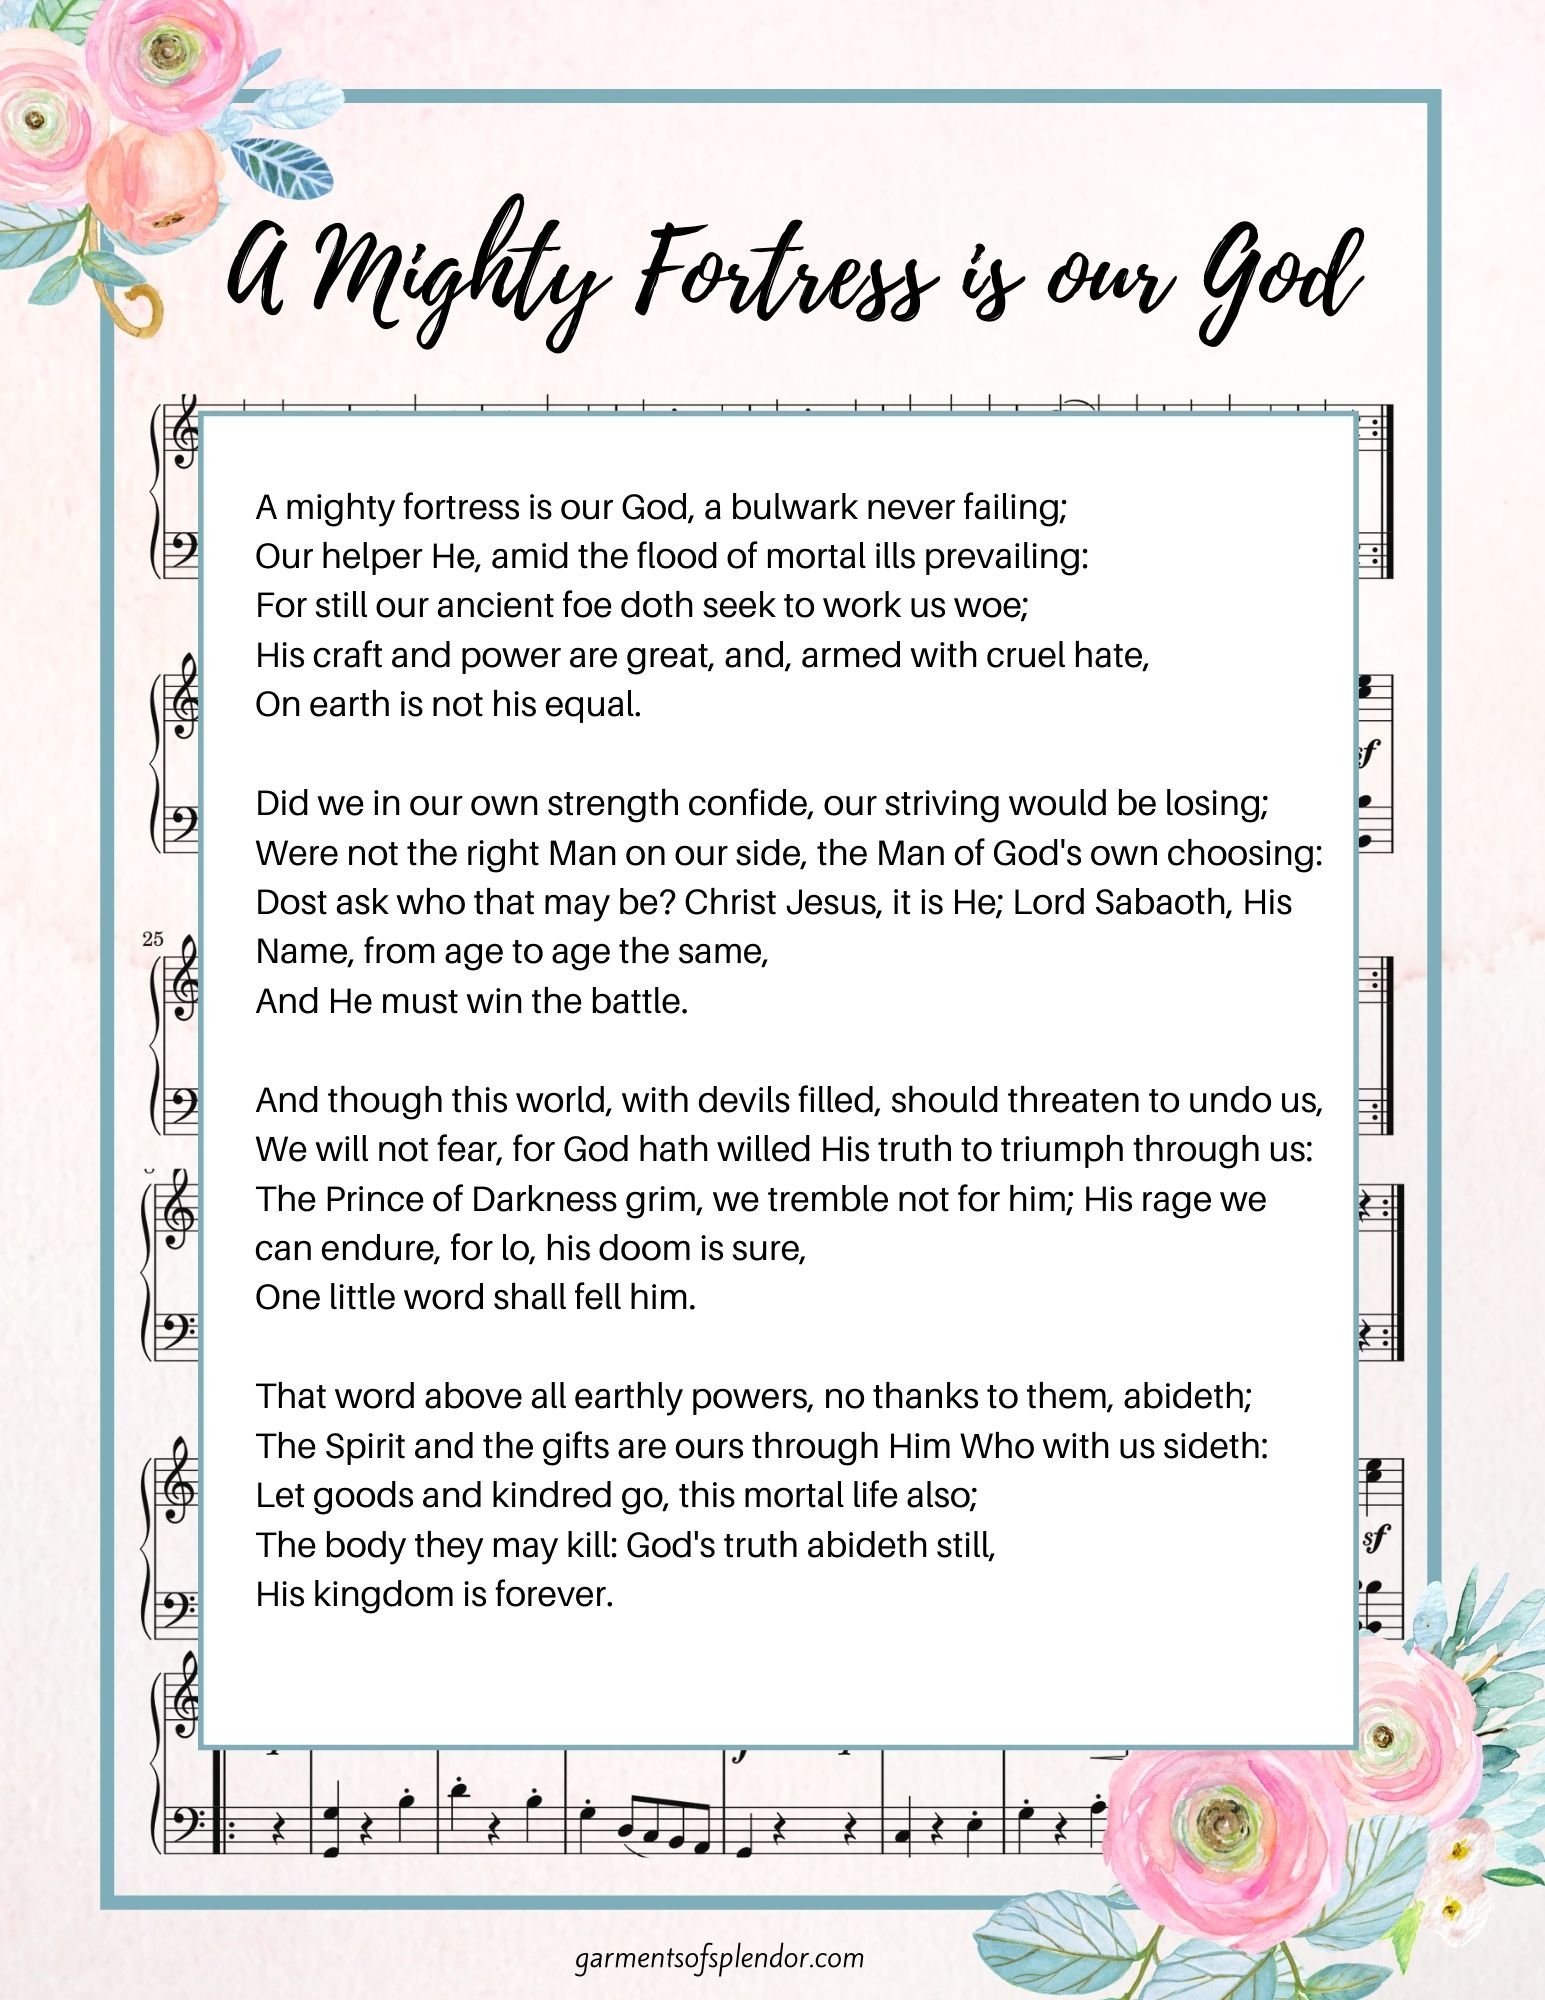 A Mighty Fortress is our God
A mighty fortress is our God, a bulwark never failing;
Our helper He, amid the flood of mortal ills prevailing:
For still our ancient foe doth seek to work us woe;
His craft and power are great, and, armed with cruel hate,
On earth is not his equal.
Did we in our own strength confide, our striving would be losing;
Were not the right Man on our side, the Man of God's own choosing:
Dost ask who that may be? Christ Jesus, it is He; Lord Sabaoth, His
Name, from age to age the same,
And He must win the battle.
And though this world, with devils filled, should threaten to undo us,
We will not fear, for God hath willed His truth to triumph through us:
The Prince of Darkness grim, we tremble not for him; His rage we
can endure, for lo, his doom is sure,
One little word shall fell him.
That word above all earthly powers, no thanks to them, abideth;
The Spirit and the gifts are ours through Him Who with us sideth:
Let goods and kindred go, this mortal life also;
The body they may kill: God's truth abideth still,
His kingdom is forever.
sf
25
sf
garmentsofsplendor.com